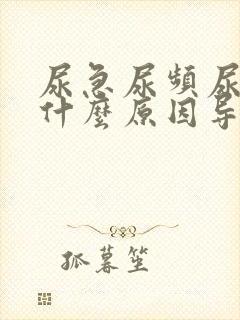 尿急尿頻尿
什麼原因导
孤暮笙